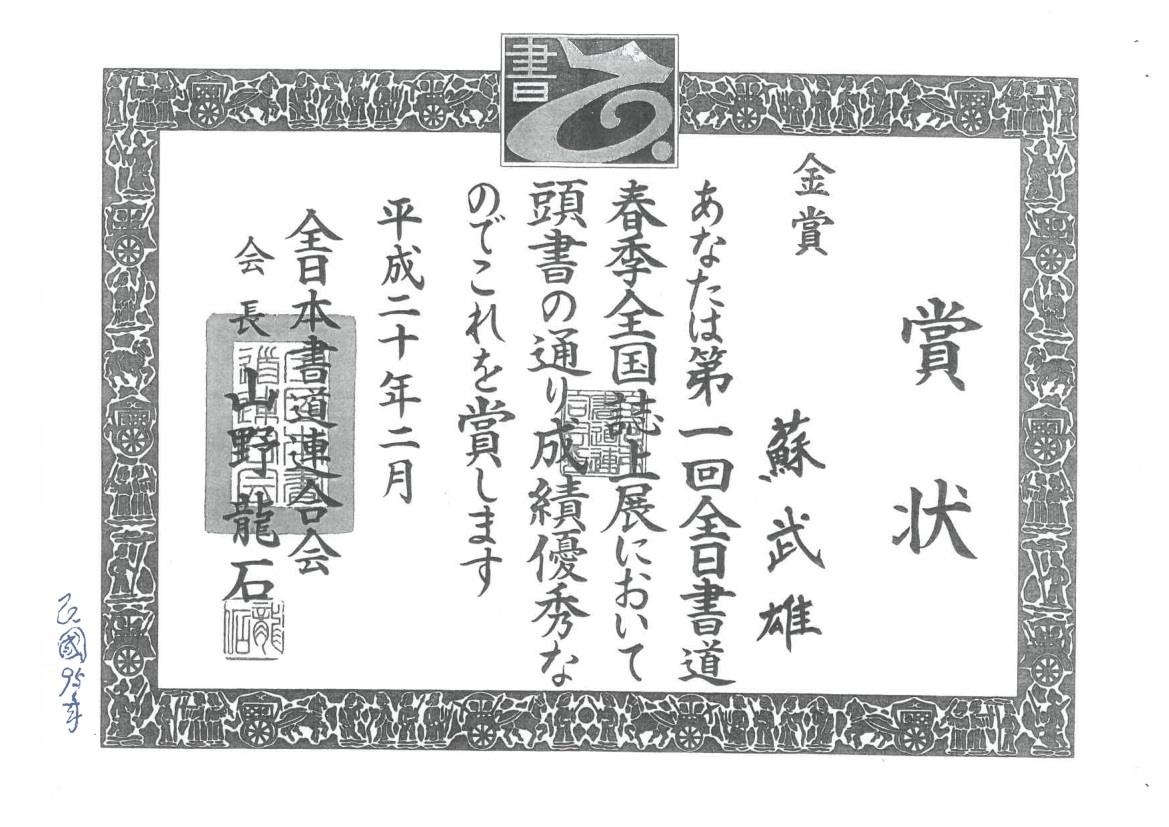 書
賞状
金賞
蘇武雄
あなたは第一回全日書道
春季全国誌上展において
頭書の通り成績優秀な
のでこれを賞します
平成二十年二月
全日本書道連合会
会長 山野龍石
龍石
民國95年